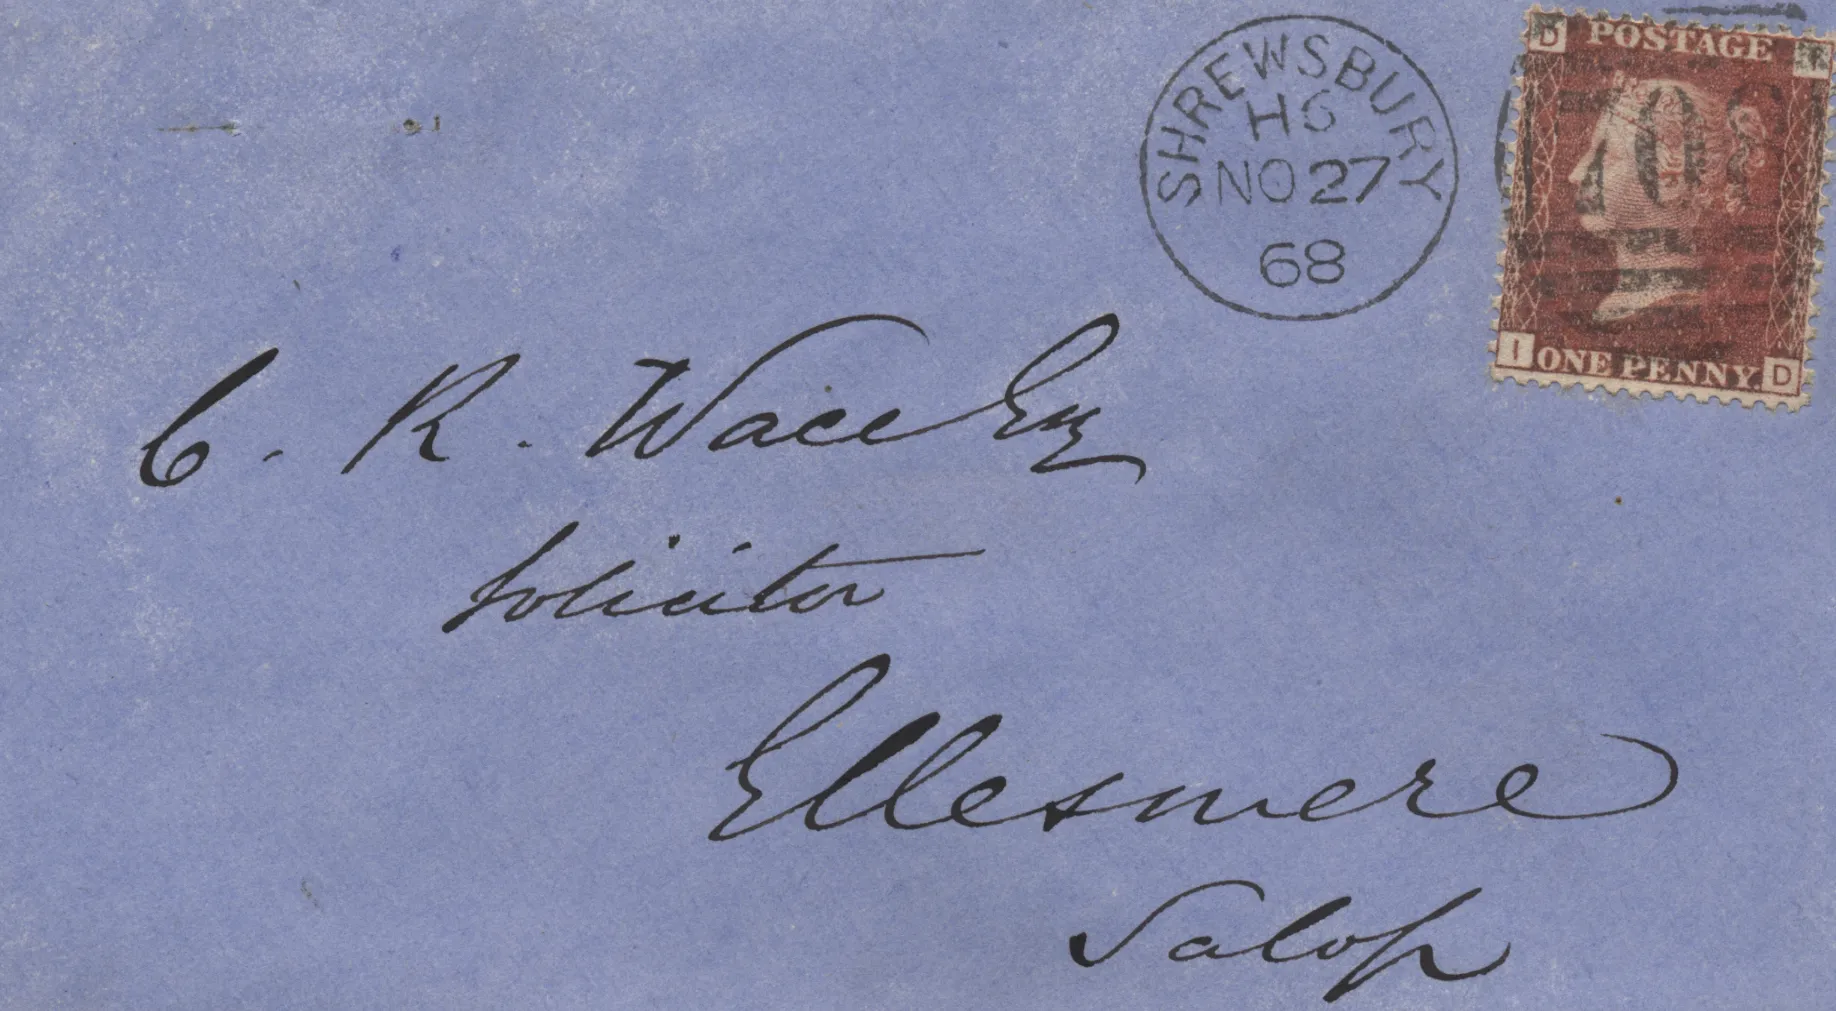 SHREWSBURY
H6
NO 27
68
D POSTAGE
708
I ONE PENNY. D
C. R. Wace Esq
Solicitor
Ellesmere
Salop